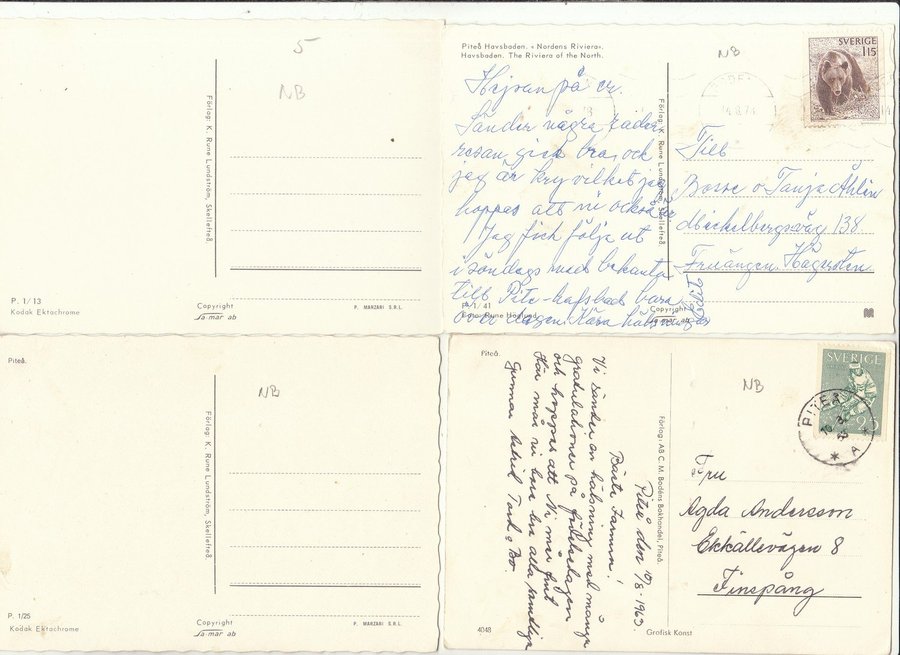 5
NB
Förlag: K. Rune Lundström, Skellefteå.
P. 1/13
Kodak Ektachrome
Copyright
la-mar ab
P. MANZARI S.R.L.
Piteå Havsbaden. «Nordens Riviera».
Havsbaden. The Riviera of the North.
NB
SVERIGE
1.15
Hejsan på er.
Sänder några rader
resan gick bra, och
jag är kry vilket jag
hoppas att ni också är
Jag fick följa ut
i söndags med bekanta
till Pite-hafsbad bara
över dagen. Kära hälsningar
Förlag: K. Rune Lundström, Skellefteå.
Till
Bosse o Tanja Åhlin
Mickelbergsväg 138.
Fruängen. Hägersten.
P. 1/41
Foto: Rune Höglund
Copyright
la-mar ab
Piteå.
NB
Förlag: K. Rune Lundström, Skellefteå.
P. 1/25
Kodak Ektachrome
Copyright
la-mar ab
P. MANZARI S.R.L.
Piteå.
NB
SVERIGE
25
PITEÅ
A
Piteå den 10/8-1963.
Bästa Faster!
Vi sänder en hälsning med många
gratulationer på födelsedagen
och hoppas att Ni mår gott
Här mår vi bara bra alla samtliga
Gunnar Astrid Tord o Bo.
Förlag: AB C. M. Bodéns Bokhandel, Piteå.
Fru
Agda Andersson
Ekkällevägen 8
Finspång
4048
Grafisk Konst